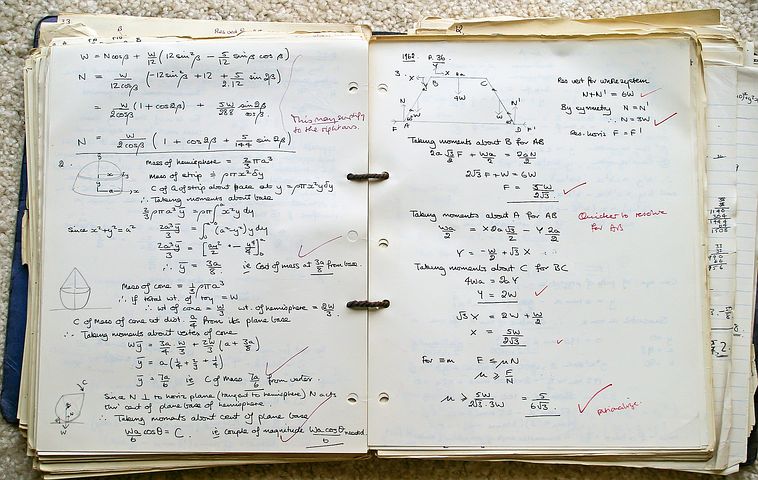 W = N cos β + W/12 (12 sin²β − 5/12 sin β cos β)
N = W/12cosβ (−12 sin²β + 12 + 5/2.12 sin 2β)
= W/2cosβ (1 + cos 2β) + 5W/288 sin 2β/cos β
This may simplify
to the right ans.
N = W/2cosβ (1 + cos 2β + 5/144 sin 2β)
2.
Mass of hemisphere = 2/3 ρπa³
Mass of strip = πx²δy
C of G of strip about base at y = ρπx²yδy
∴ Taking moments about base
2/3 ρπa³ȳ = ρπ∫x²y dy
Since x²+y² = a² 2a³ȳ/3 = ∫(a²−y²)y dy
∴ ȳ = 3a/8 ie C of mass at 3a/8 from base.
Mass of cone = 1/3 ρπa³
∴ If total wt. of toy = W
∴ wt of cone = W/3 wt. of hemisphere = 2W/3
C of Mass of cone at dist. a/4 from its plane base
∴ Taking moments about vertex of cone
Wȳ = 3a/4 W/3 + 2W/3 (a + 3a/8)
ȳ = a(1/4 + 2/3 + 1/4)
ȳ = 7a/6 ie C of Mass 7a/6 from vertex.
Since N ⊥ to horiz plane (tangent to hemisphere) N acts
thro' cent of plane base of hemisphere
∴ Taking moments about cent of plane base
Wa/6 cosθ = C. ie couple of magnitude Wa cosθ/6 needed.
1962. A 36.
3.
Res vert for whole system
N + N' = 6W
By symmetry N = N'
∴ N = 3W
Res. horiz F = F'
Taking moments about B for AB
2a√3/2 F + Wa/2 = 2aN/2
2√3 F + W = 6W
F = 5W/2√3
Taking moments about A for AB
Quicker to resolve
for AB
Wa/2 = X2a√3/2 − Y 2a/2
Y = −W/2 + √3 X
Taking moments about C for BC
4Wa = 2aY
Y = 2W
√3 X = 2W + W/2
X = 5W/2√3
F ≤ μN
μ ≥ F/N
μ ≥ 5W/2√3.3W = 5/6√3
rationalise.